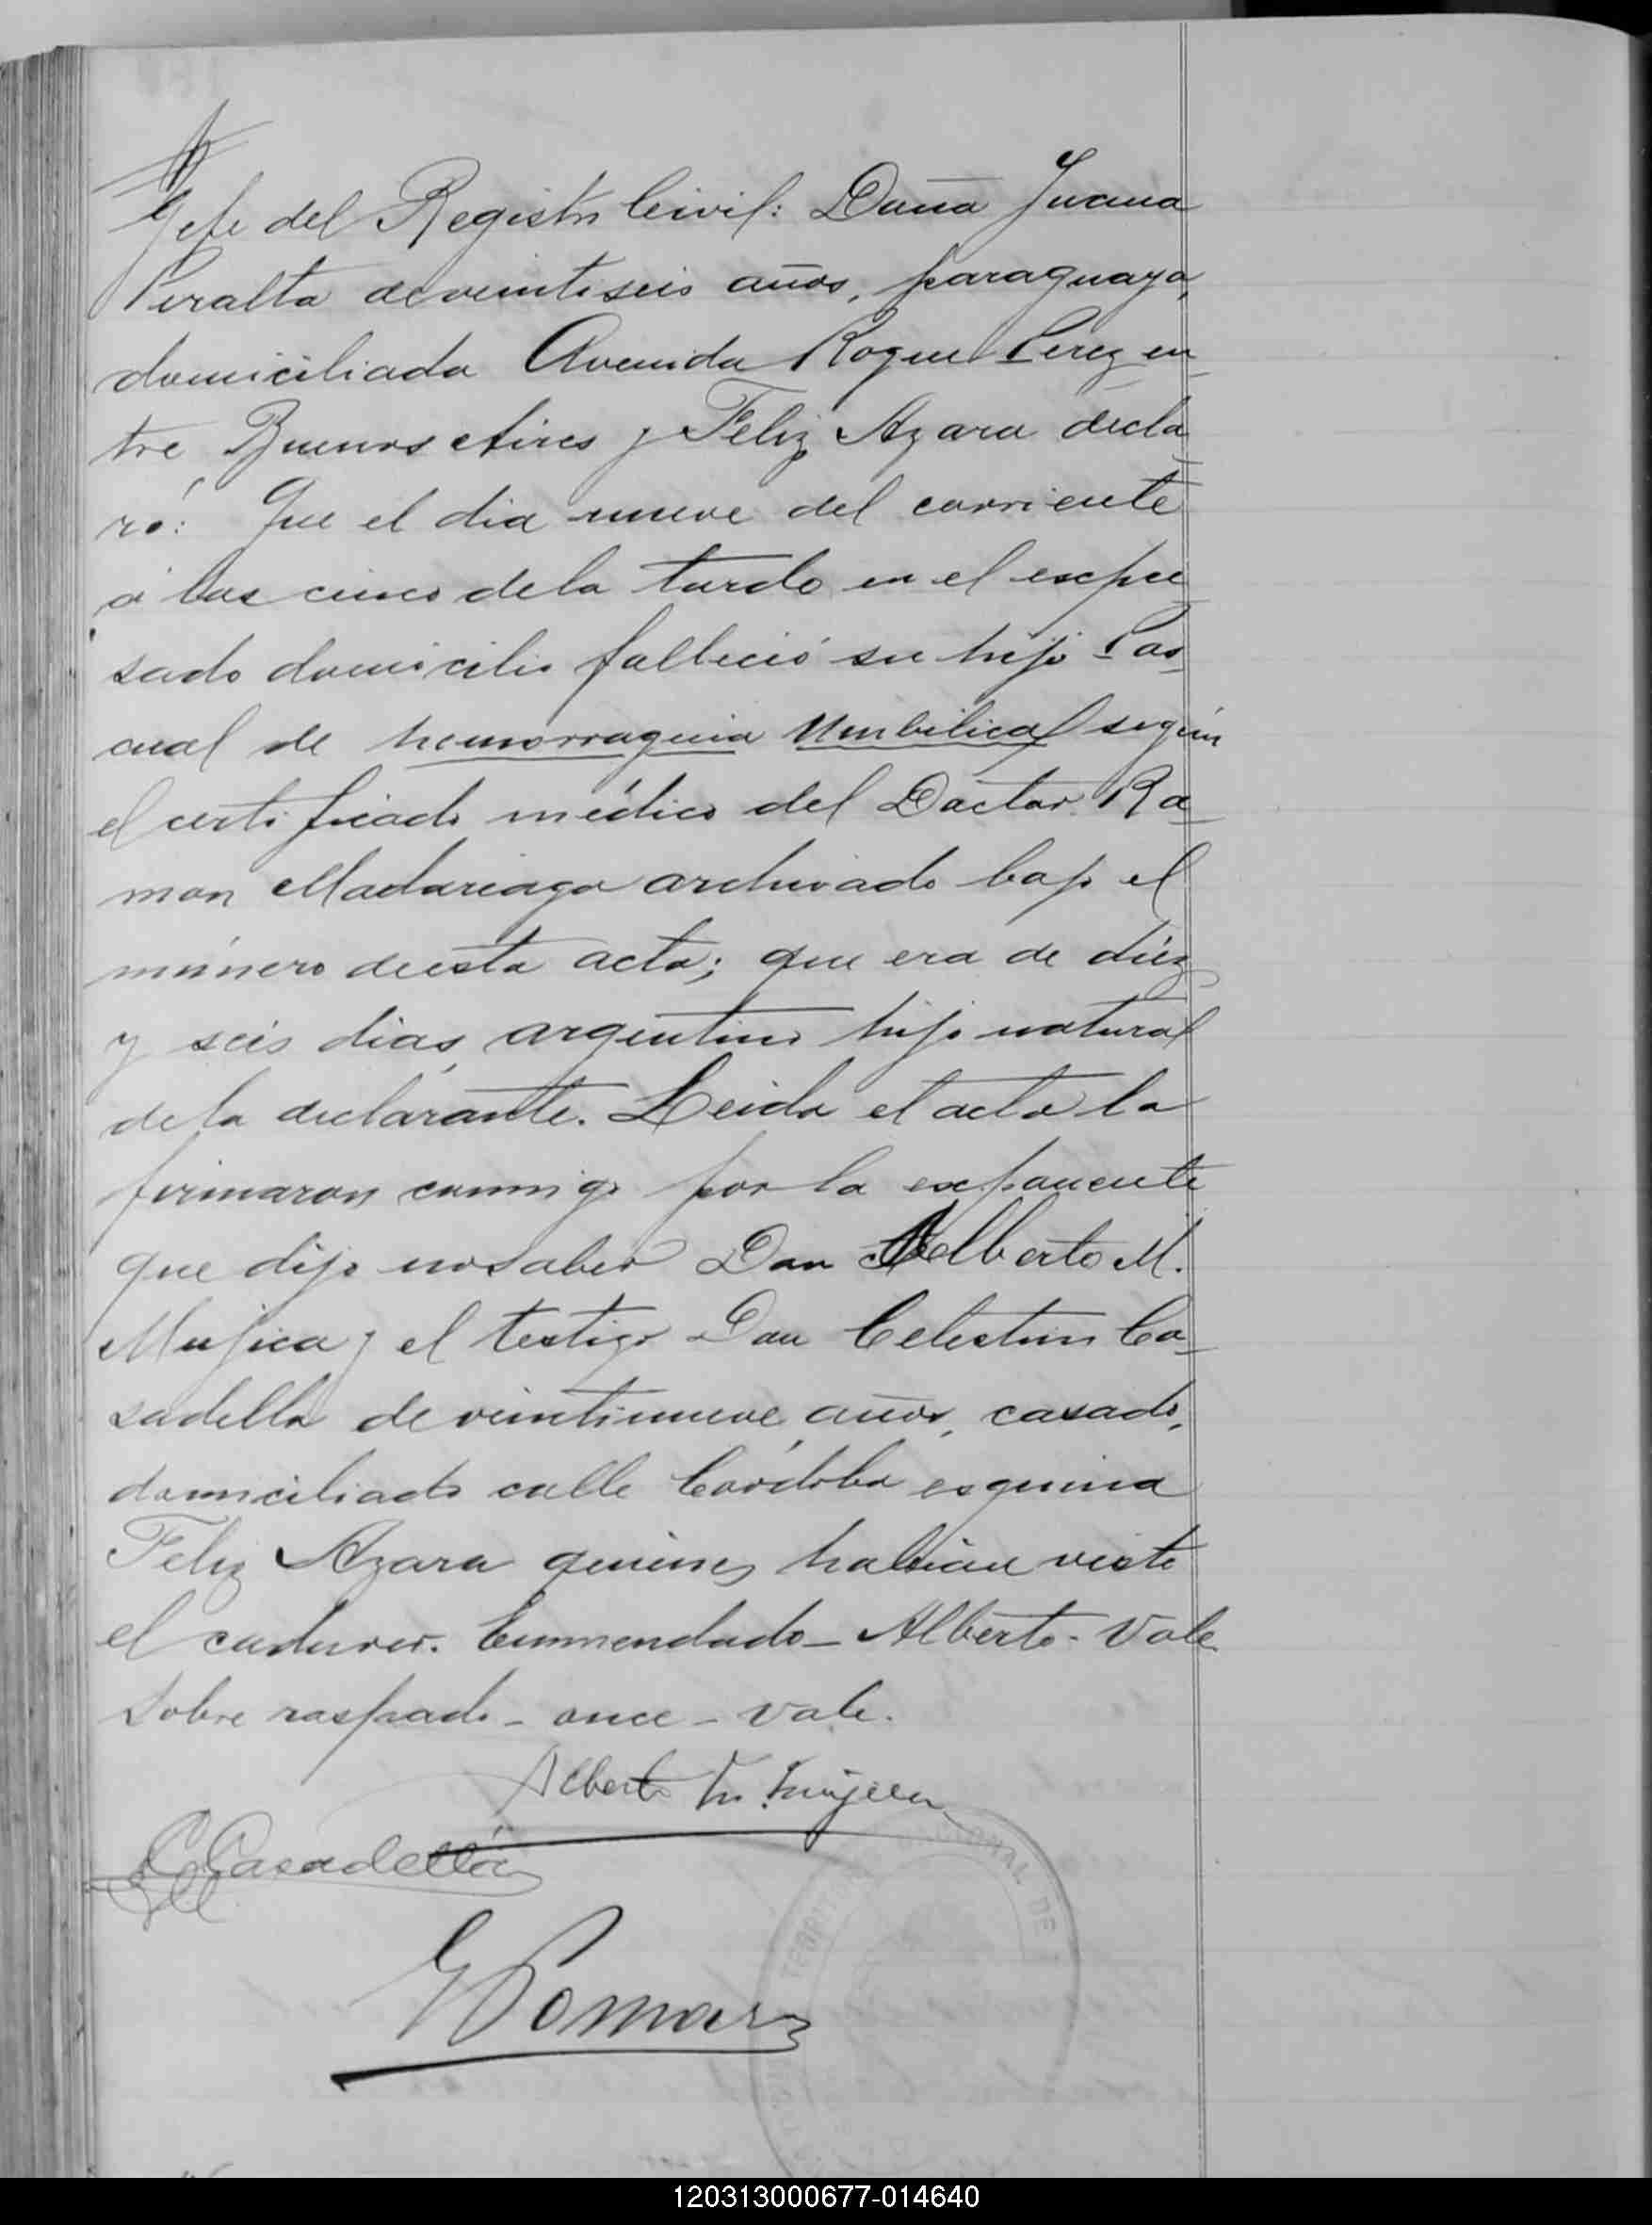 Gefe del Registro Civil: Doña Juana
Peralta de veintiseis años, paraguaya,
domiciliada Avenida Roque Perez en-
tre Buenos Aires y Feliz Azara decla-
ró: Que el dia nueve del corriente
á las cinco de la tarde en el espre-
sado domicilio falleció su hijo Pas-
cual de hemorraguia Umbilical según
el certificado médico del Doctor Ra-
mon Madariaga archivado bajo el
número de esta acta; que era de diez
y seis dias, argentino hijo natural
de la declarante. Leida el acta la
firmaron conmigo por la exponente
que dijo no saber Don Alberto M.
Mujica y el testigo Don Celestino Ca-
sadella de veintinueve años, casado,
domiciliado calle Cordoba esquina
Feliz Azara quienes habian visto
el cadaver. Enmendado - Alberto - Vale
Sobre raspado - once - Vale.
Alberto M. Mujica
C. Casadellá
G Pomar
TERRIT NAL DE
120313000677-014640